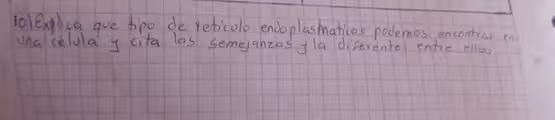 10) Explica que tipo de reticolo endoplasmaticos podemos encontrar en
una celula y cita las semejanzas y la diferente entre ellos